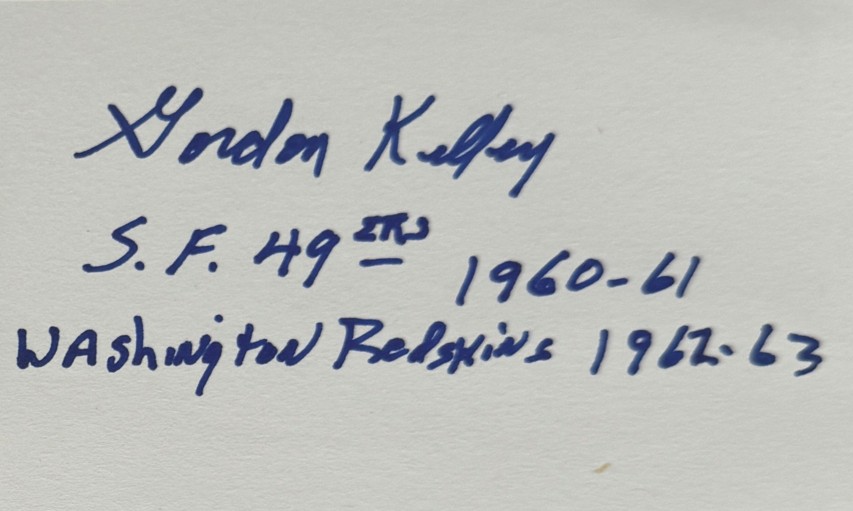 Gordon Kelley
S. F. 49ERS 1960-61
WAshington Redskins 1962-63